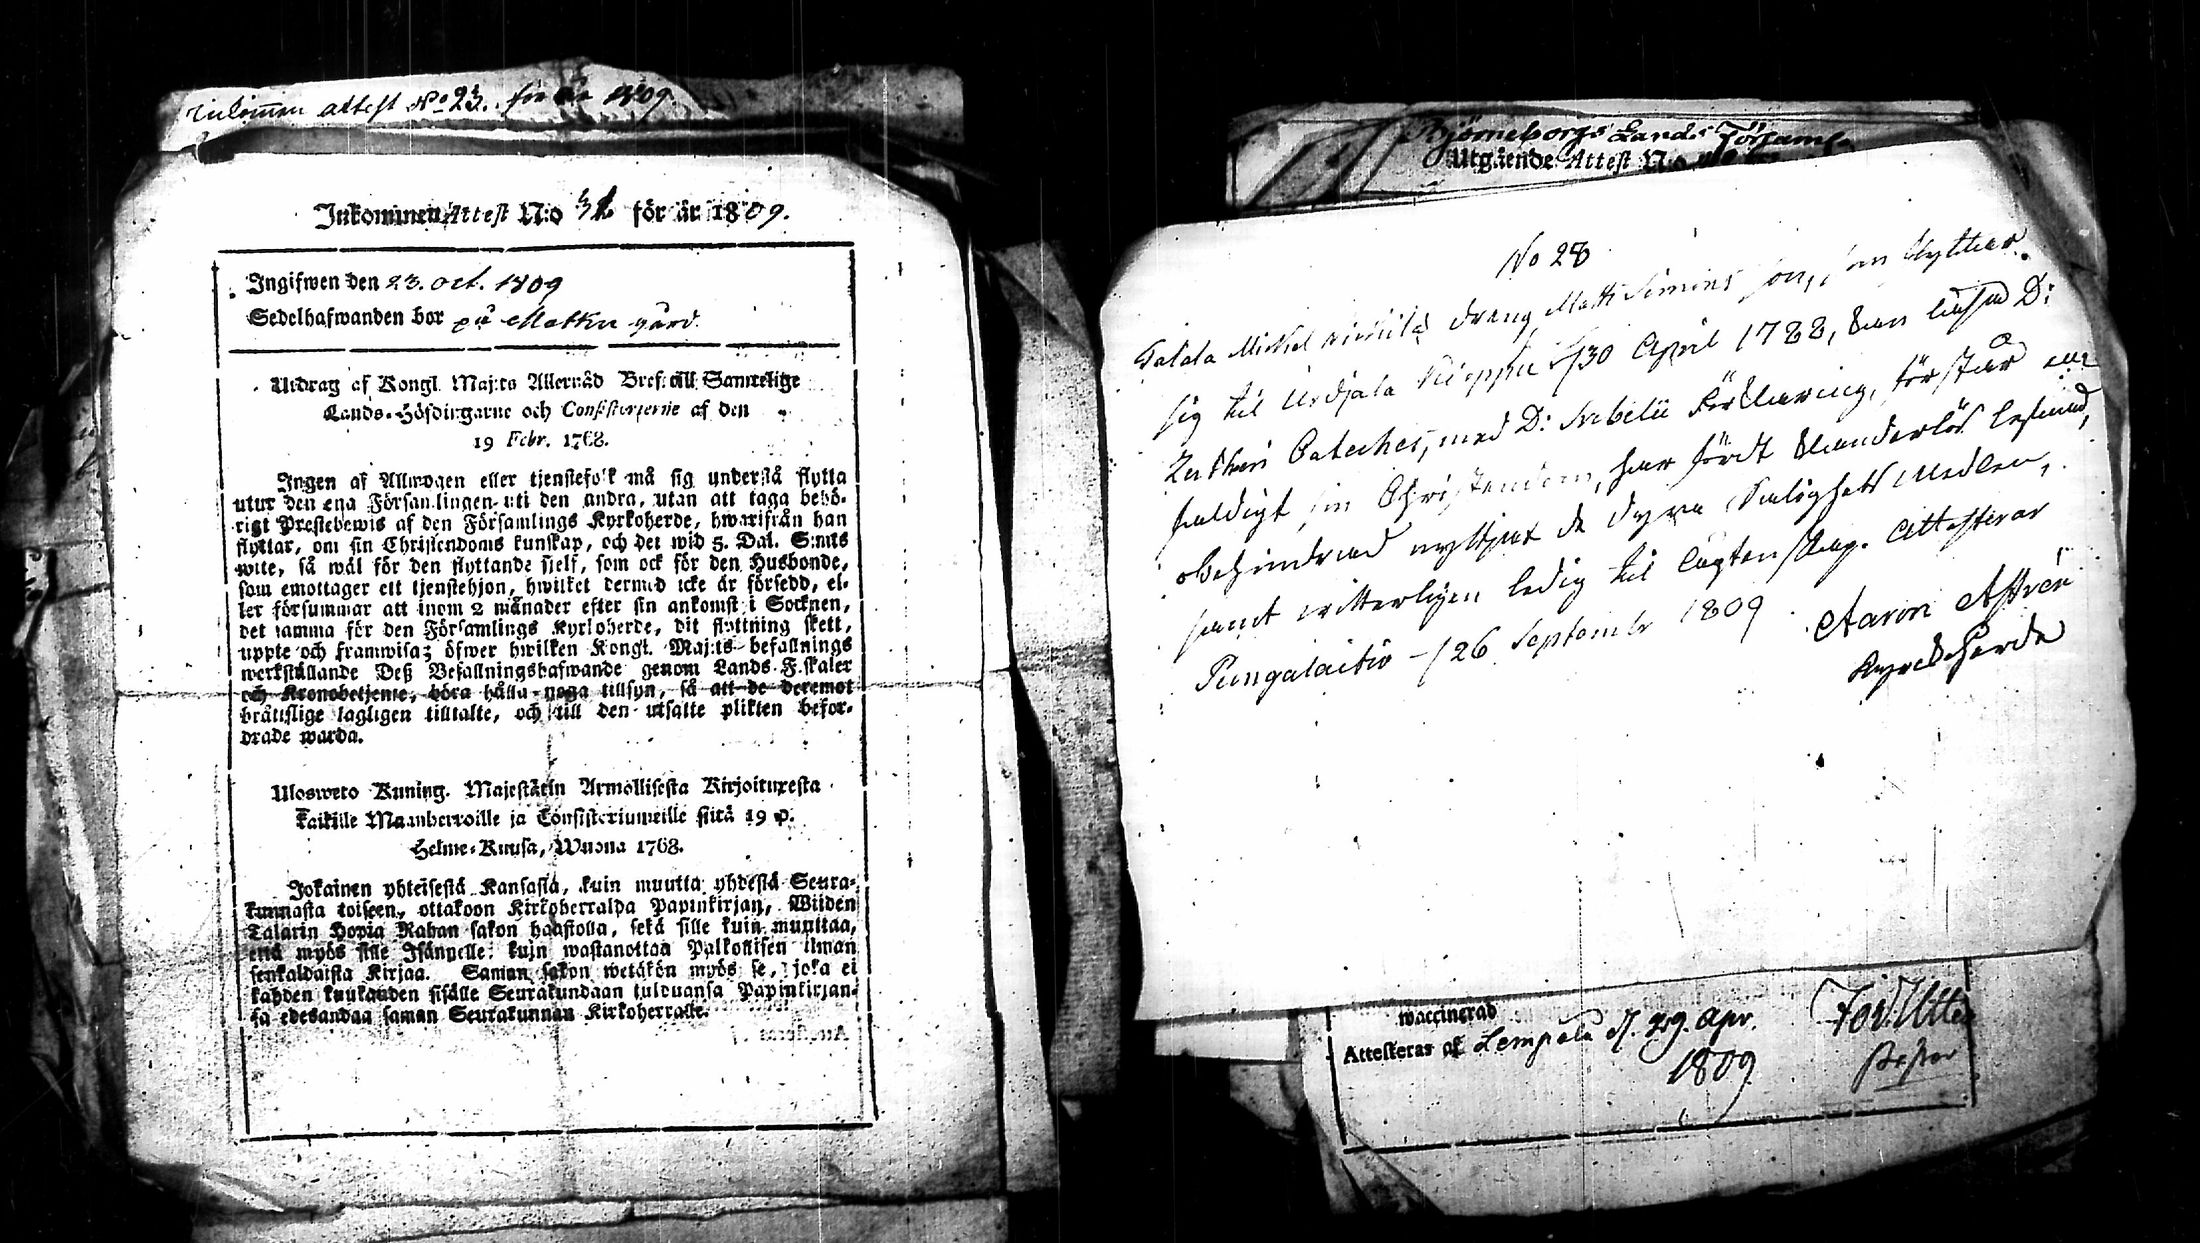 Inkommen attest No 23. för år 1809.
Inkommen Attest N:o för år 1809.
Ingifwen den 23. oct. 1809
Sedelhafwanden bor på Matku gård.
Utdrag af Kongl. Maj:ts Allernåd Bref till Samtelige
Lands-Höfdingarne och Consistorierne af den
19 Febr. 1768.
Ingen af Allmogen eller tjenstefolk må sig understå flytta
utur den ena Församlingen uti den andra, utan att taga behö-
rigt Prestebewis af den Församlings Kyrkoherde, hwarifrån han
flyttar, om sin Christendoms kunskap, och det wid 5. Dal. S:mts
wite, så wäl för den flyttande sielf, som ock för den Husbonde,
som emottager ett tjenstehjon, hwilket dermed icke är försedd, el-
ler försummar att inom 2 månader efter sin ankomst i Socknen,
det samma för den Församlings Kyrkoherde, dit flyttning skett,
uppte och framwisa; öfwer hwilken Kongl. Maj:ts befallnings
werkställande Deß Befallningshafwande genom Lands-Fiskaler
och Kronobetjente, böra hålla noga tillsyn, så att de deremot
bråttslige lagligen tilltalte, och till den utsatte plikten befor-
drade warda.
Ulosweto Kuning. Majestätin Armollisesta Kirjoituxesta
kaikille Maanherroille ja Consistoriumeille siitä 19 p.
Helme-Kuusa, Wuona 1768.
Jokainen yhteisestä Kansasta, kuin muutta yhdestä Seura-
kunnasta toiseen, ottakoon Kirkoherralda Papinkirjan, Wiiden
Talarin Hopia Rahan sakon haastolla, sekä sille kuin muuttaa,
että myös sille Isännelle kuin wastanottaa Palkollisen ilman
senkaldaista Kirjaa. Saman sakon wetäkön myös se, joka ei
kahden kuukauden sisälle Seurakundaan tulduansa Papinkirjan-
sa edesandaa saman Seurakunnan Kirkoherralle.
Björneborgs Lands Församl
Utgående Attest N:o
No 28
Mickel drang Matts Simons son, som flyttar
sig til Urdjala 30 April 1788, kan läsa D:
Lutheri Cateches, med D: Svebelii Förklaring, förstår en
faldigt sin Christendom, har fördt klanderlös lefnad,
obehindrad nyttjat de dyra Salighets Medlen,
samt witterligen ledig til Ægtenskap. Attesterar
Pungalaitio 26 September 1809. Aaron
Kyrckoherde
waccinerad
Attesteras af Lempälä d. 29. Apr.
1809